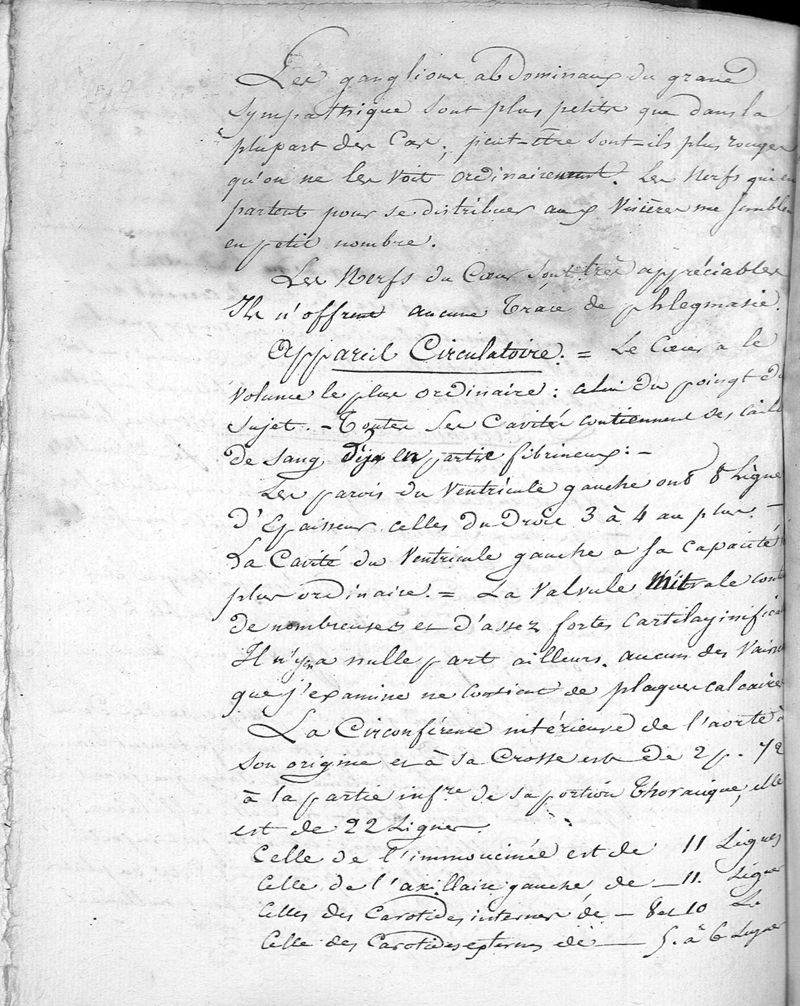 Les ganglions abdominaux du grand
Sympathique sont plus petits que dans la
plupart des Cas; peut-être sont-ils plus rouges
qu'on ne les voit ordinairement. Les Nerfs qui en
partent pour se distribuer aux Viscères me semblen
en petit nombre.
Les Nerfs du Cœur sont très appréciables
Ils n'offrent aucune Trace de phlegmasie.
Appareil Circulatoire. = Le Cœur a le
Volume le plus ordinaire: celui du poingt du
Sujet. - Toutes ses Cavités contiennent des cail
de Sang déja en partie fibrineux: -
Les parois du Ventricule gauche ont 8 Ligne
d'Epaisseur celles du Droit 3 à 4 au plus. -
La Cavité du Ventricule gauche a sa capacité
plus ordinaire. = La Valvule Mitrale cont
de nombreuses et d'assez fortes Cartilaginifica
Il n'y en a nulle part ailleurs. aucun des Vais
que j'examine ne Contient de plaques calcaire
La Circonférence intérieure de l'aorte à
Son origine et à sa Crosse est de 2 p. 1/2
à la partie infre de sa portion Thoracique, elle
est de 22 Lignes.
Celle de l'innominée est de 11 Lignes
Celle de l'axillaire gauche de - 11. Lignes
Celles des Carotides internes de - 8 et 10 Li
Celle des Carotides externes de - 5. à 6 Lignes